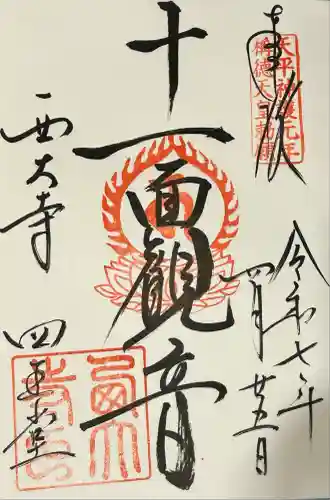 奉拝
天平神護元年
称徳天皇勅願
令和七年
四月廿五日
十一面観音
西大寺
四王堂